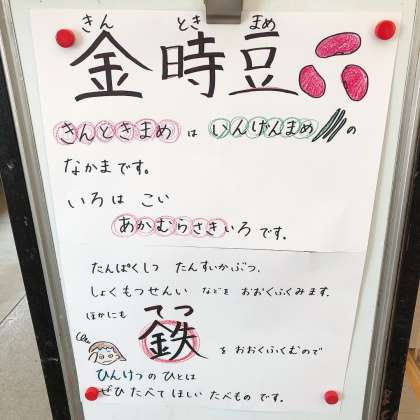 きん とき まめ
金時豆
きんときまめ は いんげんまめ の
なかまです。
いろは こい
あかむらさきいろです。
たんぱくしつ たんすいかぶつ、
しょくもつせんい などを おおくふくみます。
ほかにも
てつ
鉄
を おおくふくむので
ひんけつのひとは
ぜひ たべて ほしい たべもの です。